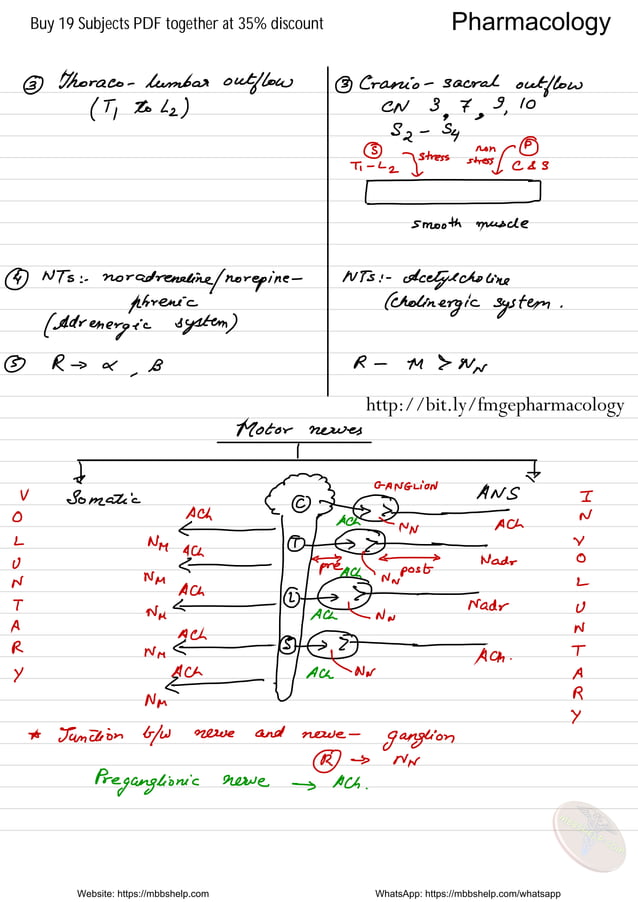 Buy 19 Subjects PDF together at 35% discount
Pharmacology
③ Thoraco-lumbar outflow
(T₁ to L₂)
③ Cranio-sacral outflow
CN 3, 7, 9, 10
S₂ – S₄
S
T₁-L₂
stress
non stress
P
C & S
smooth muscle
④ NTs:- noradrenaline/norepine-
phrenic
(Adrenergic system)
NTs:- Acetylcholine
(cholinergic system.
⑤ R → α, β
R – M > NN
http://bit.ly/fmgepharmacology
Motor nerves
Somatic
ANS
VOLUNTARY
INVOLUNTARY
GANGLION
C
ACh
NM
ACh
NN
ACh
T
ACh
NM
pre
ACh
NN
post
Nadr
L
ACh
NM
ACh
NN
Nadr
S
ACh
NM
ACh
NN
ACh.
ACh
NM
* Junction b/w nerve and nerve – ganglion
R → NN
Preganglionic nerve → ACh.
Website: https://mbbshelp.com
WhatsApp: https://mbbshelp.com/whatsapp